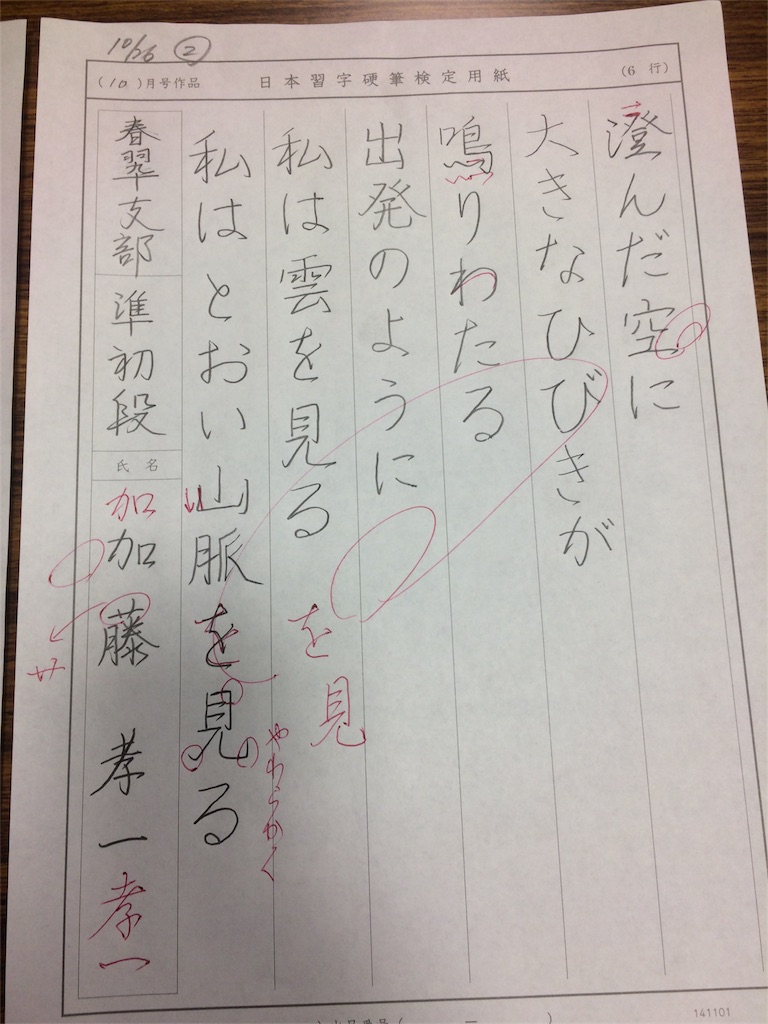 10/26 ②
(10)月号作品 日本習字硬筆検定用紙 (6 行)
澄んだ空に
大きなひびきが
鳴りわたる
出発のように
私は雲を見る
を見
やわらかく
私はとおい山脈を見る
春翠支部 準初段
氏名
加
加藤 孝一
サ
孝一
141101